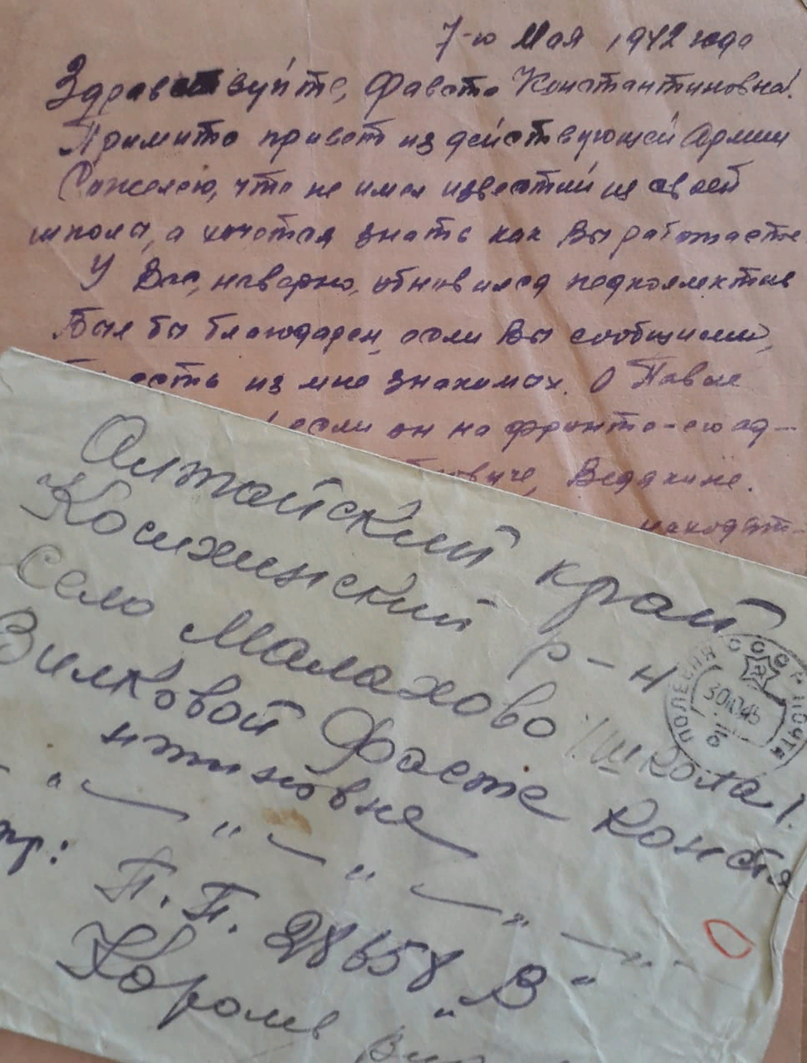 7-го Мая 1942 года
Здравствуйте, Фавста Константиновна!
Примите привет из действующей Армии
Сожалею, что не имел известий из своей
школы, а хочется знать как Вы работаете
У Вас, наверно, обновился педколлектив
Был бы благодарен, если Вы сообщили,
есть из мне знакомых. О Павле
если он на фронте - его ад-
Ведякине.
находят-
Алтайский край
Косихинский р-н
село Малахово /школа/.
Вилковой Фаете Конста
нтиновне
П.П. 28658 „В"
Королев
ПОЛЕВАЯ ПОЧТА
СССР
30.10.45